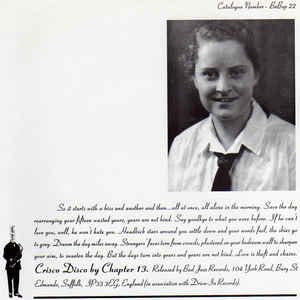 Catalogue Number - BuBop 22
So it starts with a kiss and another and then...all at once, all alone in the morning. Save the day
rearranging your fifteen wasted years, years are not kind. Say goodbye to what you were before. If he can't
love you, well, he won't hate you. Headlock stars around you settle down and your words fail, the skies go
to grey. Dream the day miles away. Strangers' faces torn from crowds, plastered on your bedroom wall to sharpen your
aim, to swallow the day. But the days turn into years and years are not kind. Love is theft and chains.
Crisco Disco by Chapter 13. Released by Bad Jazz Records, 104 York Road, Bury St
Edmunds, Suffolk, IP33 3EG, England (in association with Drive-In Records).